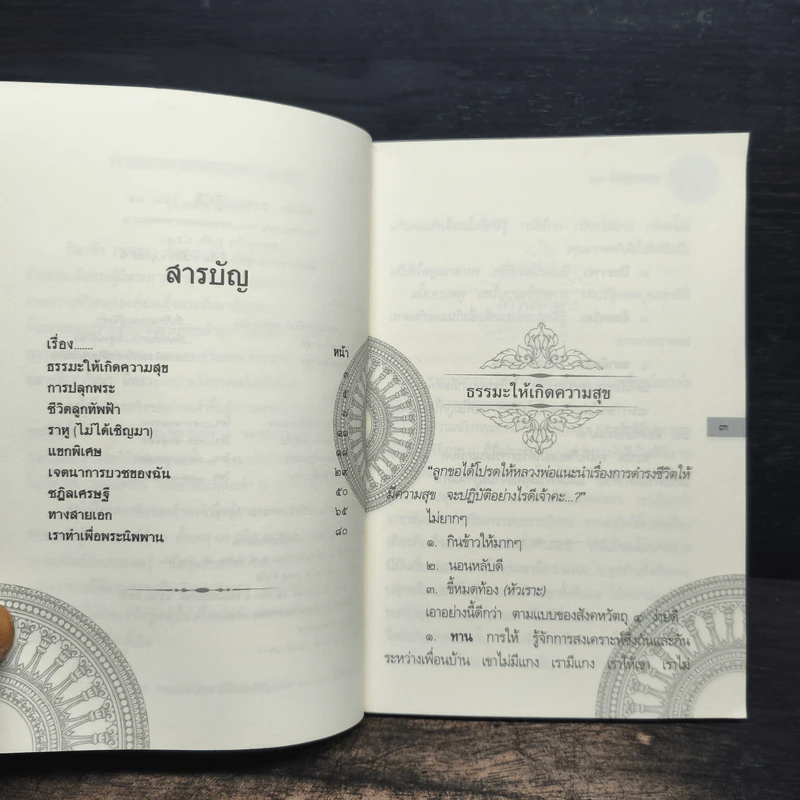 สารบัญ
เรื่อง....... หน้า
ธรรมะให้เกิดความสุข
การปลุกพระ
ชีวิตลูกทัพฟ้า
ราหู (ไม่ได้เชิญมา)
แขกพิเศษ
เจตนาการบวชของฉัน ๒๙
ชฎิลเศรษฐี ๕๐
ทางสายเอก ๖๕
เราทำเพื่อพระนิพพาน ๘๐
ธรรมะให้เกิดความสุข
"ลูกขอได้โปรดให้หลวงพ่อแนะนำเรื่องการดำรงชีวิตให้
มีความสุข จะปฏิบัติอย่างไรดีเจ้าคะ...?"
ไม่ยากๆ
๑. กินข้าวให้มากๆ
๒. นอนหลับดี
๓. ขี้หมดท้อง (หัวเราะ)
เอาอย่างนี้ดีกว่า ตามแบบของสังคหวัตถุ ๔ ง่ายดี
๑. ทาน การให้ รู้จักการสงเคราะห์ซึ่งกันและกัน
ระหว่างเพื่อนบ้าน เขาไม่มีแกง เรามีแกง เราให้เขา เราไม่